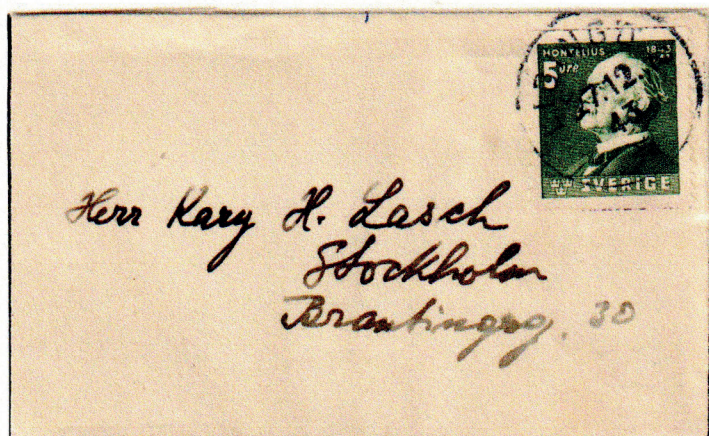 MONTELIUS 1843
5 öre
17.12.
43
SVERIGE
Herr Kary H. Lasch
Stockholm
Brantingsg. 30